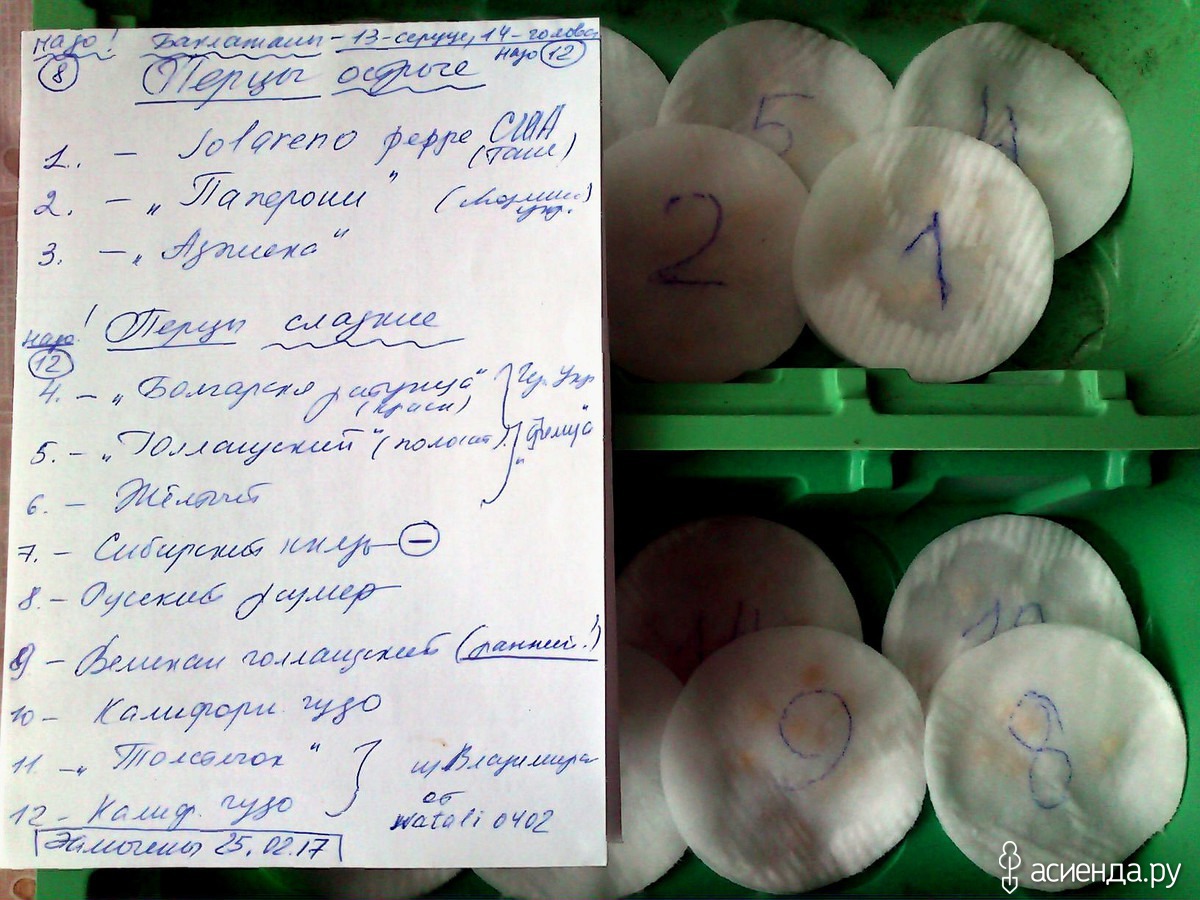 Надо! Баклажаны - 13 - сердце, 14 - голова
8 Надо 12
Перцы острые
1. - Jolareno ферре США
(Таня)
2. - „Паперони"
3. - „Аджика"
Надо!
12
Перцы сладкие
4. - „Болгарская ратунда"
(красн)
5. - „Голландский" (полосат)
6. - Жёлтый
7. - Сибирский князь -
8. - Русский размер
9 - Великан голландский (ранний!)
10 - Калифорн. чудо
11. - „Толстячок" из Владимира
12 - Калиф. чудо от
Natali 0402
Замочены 25.02.17
5
4
2
1
14
10
9
8
асиенда.ру